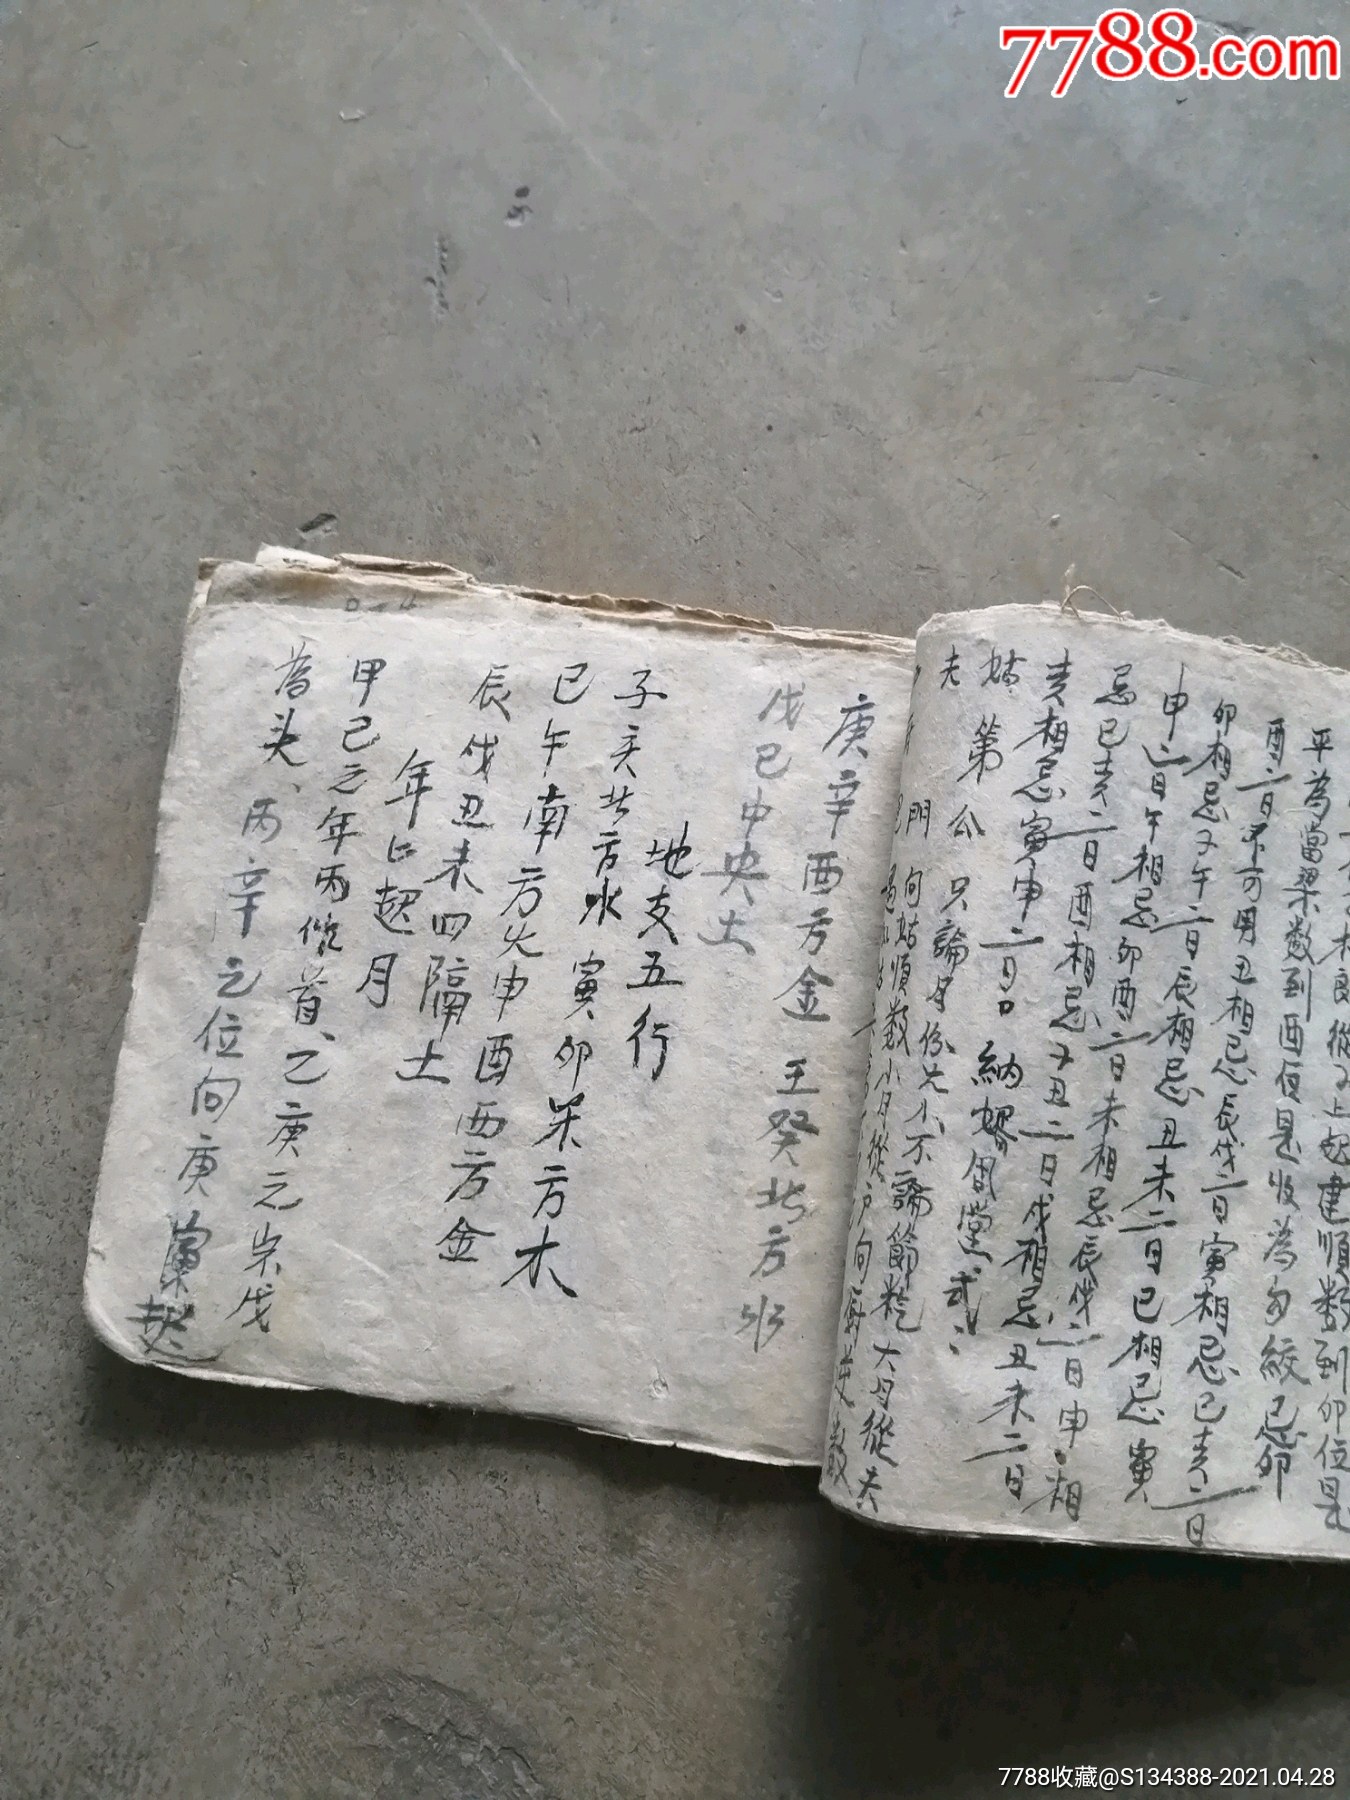 7788.com
平為當梁数到酉位是收為勾絞忌卯
酉二日不可用丑相忌辰戌二日寅相忌巳亥二日
卯相忌子午二日辰相忌丑未二日巳相忌寅
申二日午相忌卯酉二日未相忌辰戌二日申相
忌巳亥二日酉相忌子丑二日戌相忌丑未二日
亥相忌寅申二日 納婿周堂式
姑 第 公 只論月份大小不論節氣大月從夫
夫 門 向姑順数小月從 户向厨逆数
庚辛酉方金 王癸北方水
戊己中央土
地支五行
子亥北方水 寅卯東方木
巳午南方火申酉西方金
辰戌丑未四隅土
年上起月
甲己之年丙作首、乙庚之宗戊
為头、丙辛之位向庚寅起
7788收藏@S134388-2021.04.28